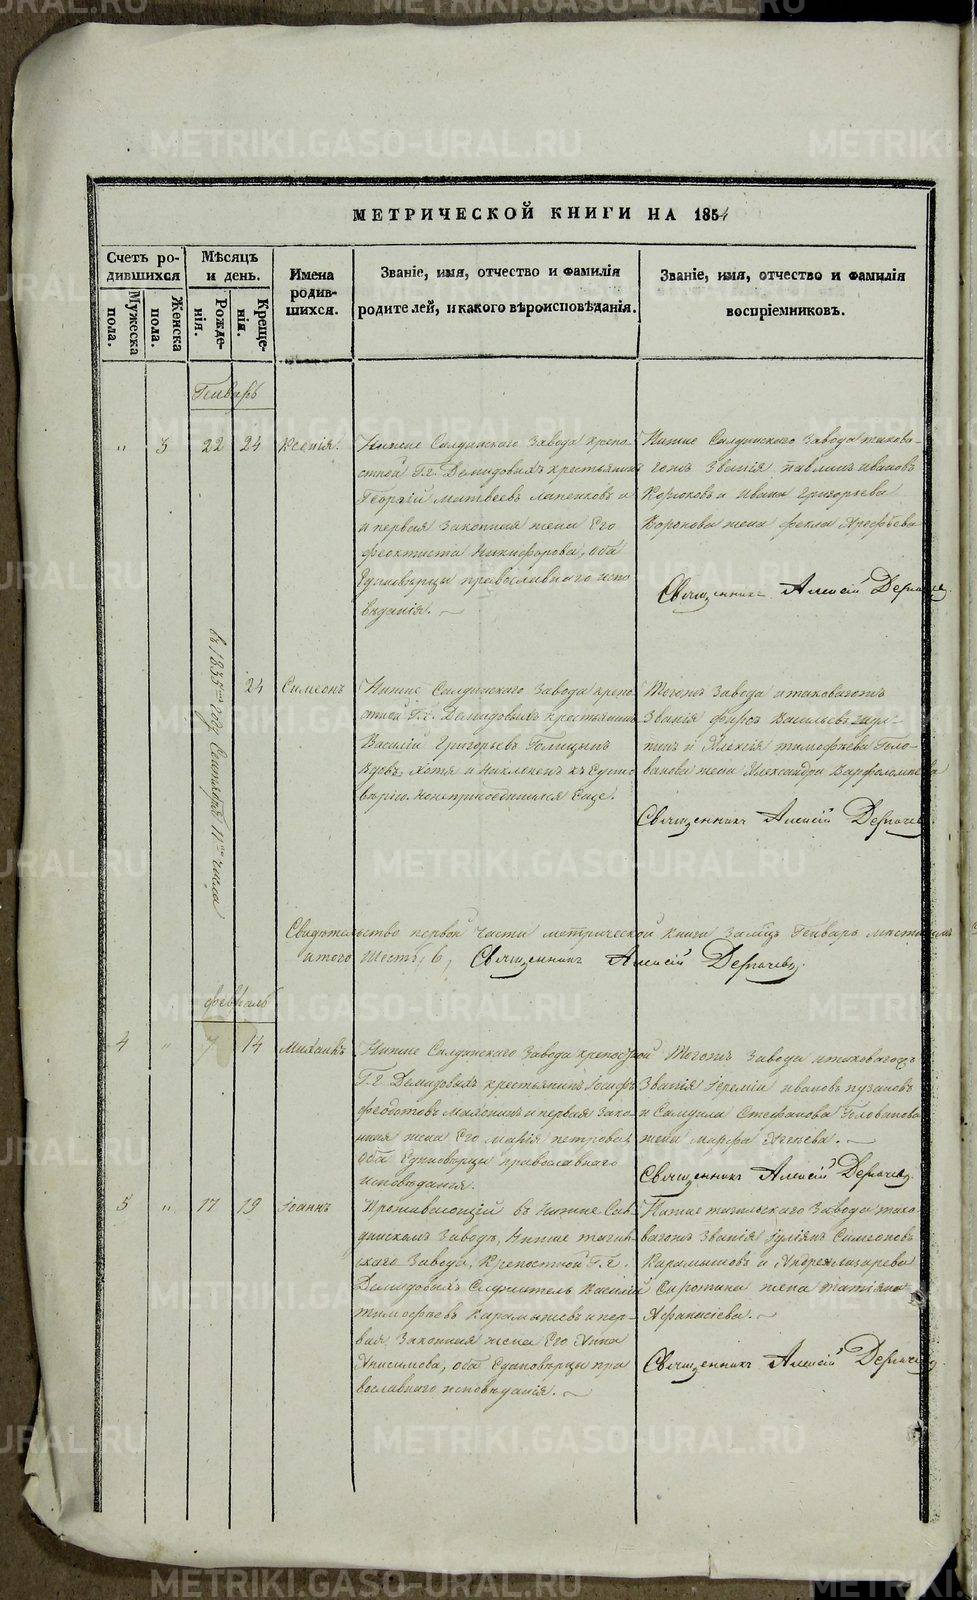 МЕТРИЧЕСКОЙ КНИГИ НА 1854
Счетъ ро-
дившихся
Мужеска пола.
Женска пола.
Мѣсяцъ
и день.
Рожде-
нія.
Креще-
нія.
Имена
родив-
шихся.
Званіе, имя, отчество и фамилія
родителей, и какого вѣроисповѣданія.
Званіе, имя, отчество и фамилія
воспріемниковъ.
Генварь
" 3 22 24 Ксенія.
Нижне Салдинскаго Завода крепо-
стной Г.г. Демидовыхъ крестьянинъ
Георгій Матвеевъ и
и первая Законная жена Его
Феоктиста Никифорова, оба
Единовѣрцы православнаго испо
вѣданія.
Нижне Салдинскаго Завода таково-
гожъ Званія Павлинъ Ивановъ
Корюковъ и Ивана Григорьева
Воронова жена Фекла Арефьева
Священникъ Алексій Дерпачев
въ 1835мъ году Сентября 11го числа
24 Симеонъ
Нижне Салдинскаго Завода крепо-
стной Г.г. Демидовыхъ крестьянинъ
Василій Григорьевъ Голицынъ
Вдовъ, хотя и наклоненъ къ Едино
вѣрію, но неприсоединился Еще.
Тогожъ Завода и таковагожъ
Званія Фирсъ Васильевъ
и Алексія Тимофѣева Голо-
ванова жена Александра Варфоломѣева
Священникъ Алексій Дерпачев.
Свидѣтельство первой части метрической книги за мцъ Генварь мѣстнымъ
итого Шесть, 6, Священникъ Алексій Дерпачевъ.
Февраль
4 " 7 14 Михаилъ
Нижне Салдинскаго Завода крепостной
Г.г. Демидовыхъ крестьянинъ Іосифъ
Феодотовъ и первая зако-
нная жена Его Марія Петрова,
оба Единовѣрцы православнаго
исповѣданія.
Тогожъ Завода и таковагожъ
Званія Іеремія Ивановъ Пузановъ
и Самуила Стефанова Голованова
жена Марфа .
Священникъ Алексій Дерпачев.
5 " 17 19 Іоаннъ
Проживающій въ Нижне Сал-
динскомъ Заводѣ, Нижне тагиль-
скаго Завода, Крепостной Г.г.
Демидовыхъ Служитель Василій
Тимофѣевъ Карамышевъ и пер-
вая Законная жена Его Анна
Анисимова, оба Единовѣрцы пра
вославнаго исповѣданія.
Нижне тагильскаго Завода тако-
вагожъ Званія Іуліанъ Симеоновъ
Карамышовъ и Андрея Лазарева
Сиротина жена Татіана
Афанасіева.
Священникъ Алексій Дерпачев